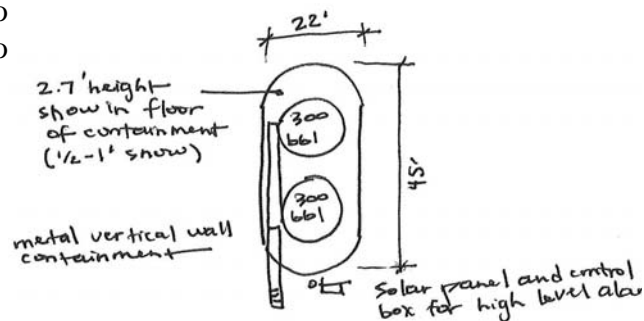 22'
2.7' height
snow in floor
of containment
(1/2-1' snow)
300
bbl
300
bbl
45'
metal vertical wall
containment
solar panel and control
box for high level alar